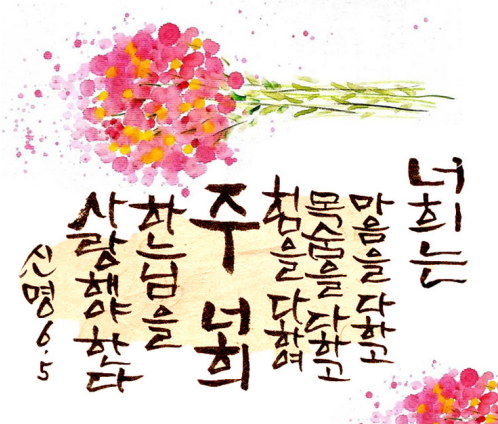 너희는
마음을 다하고
목숨을 다하고
힘을 다하여
주 너희
하느님을
사랑해야 한다
신명 6.5